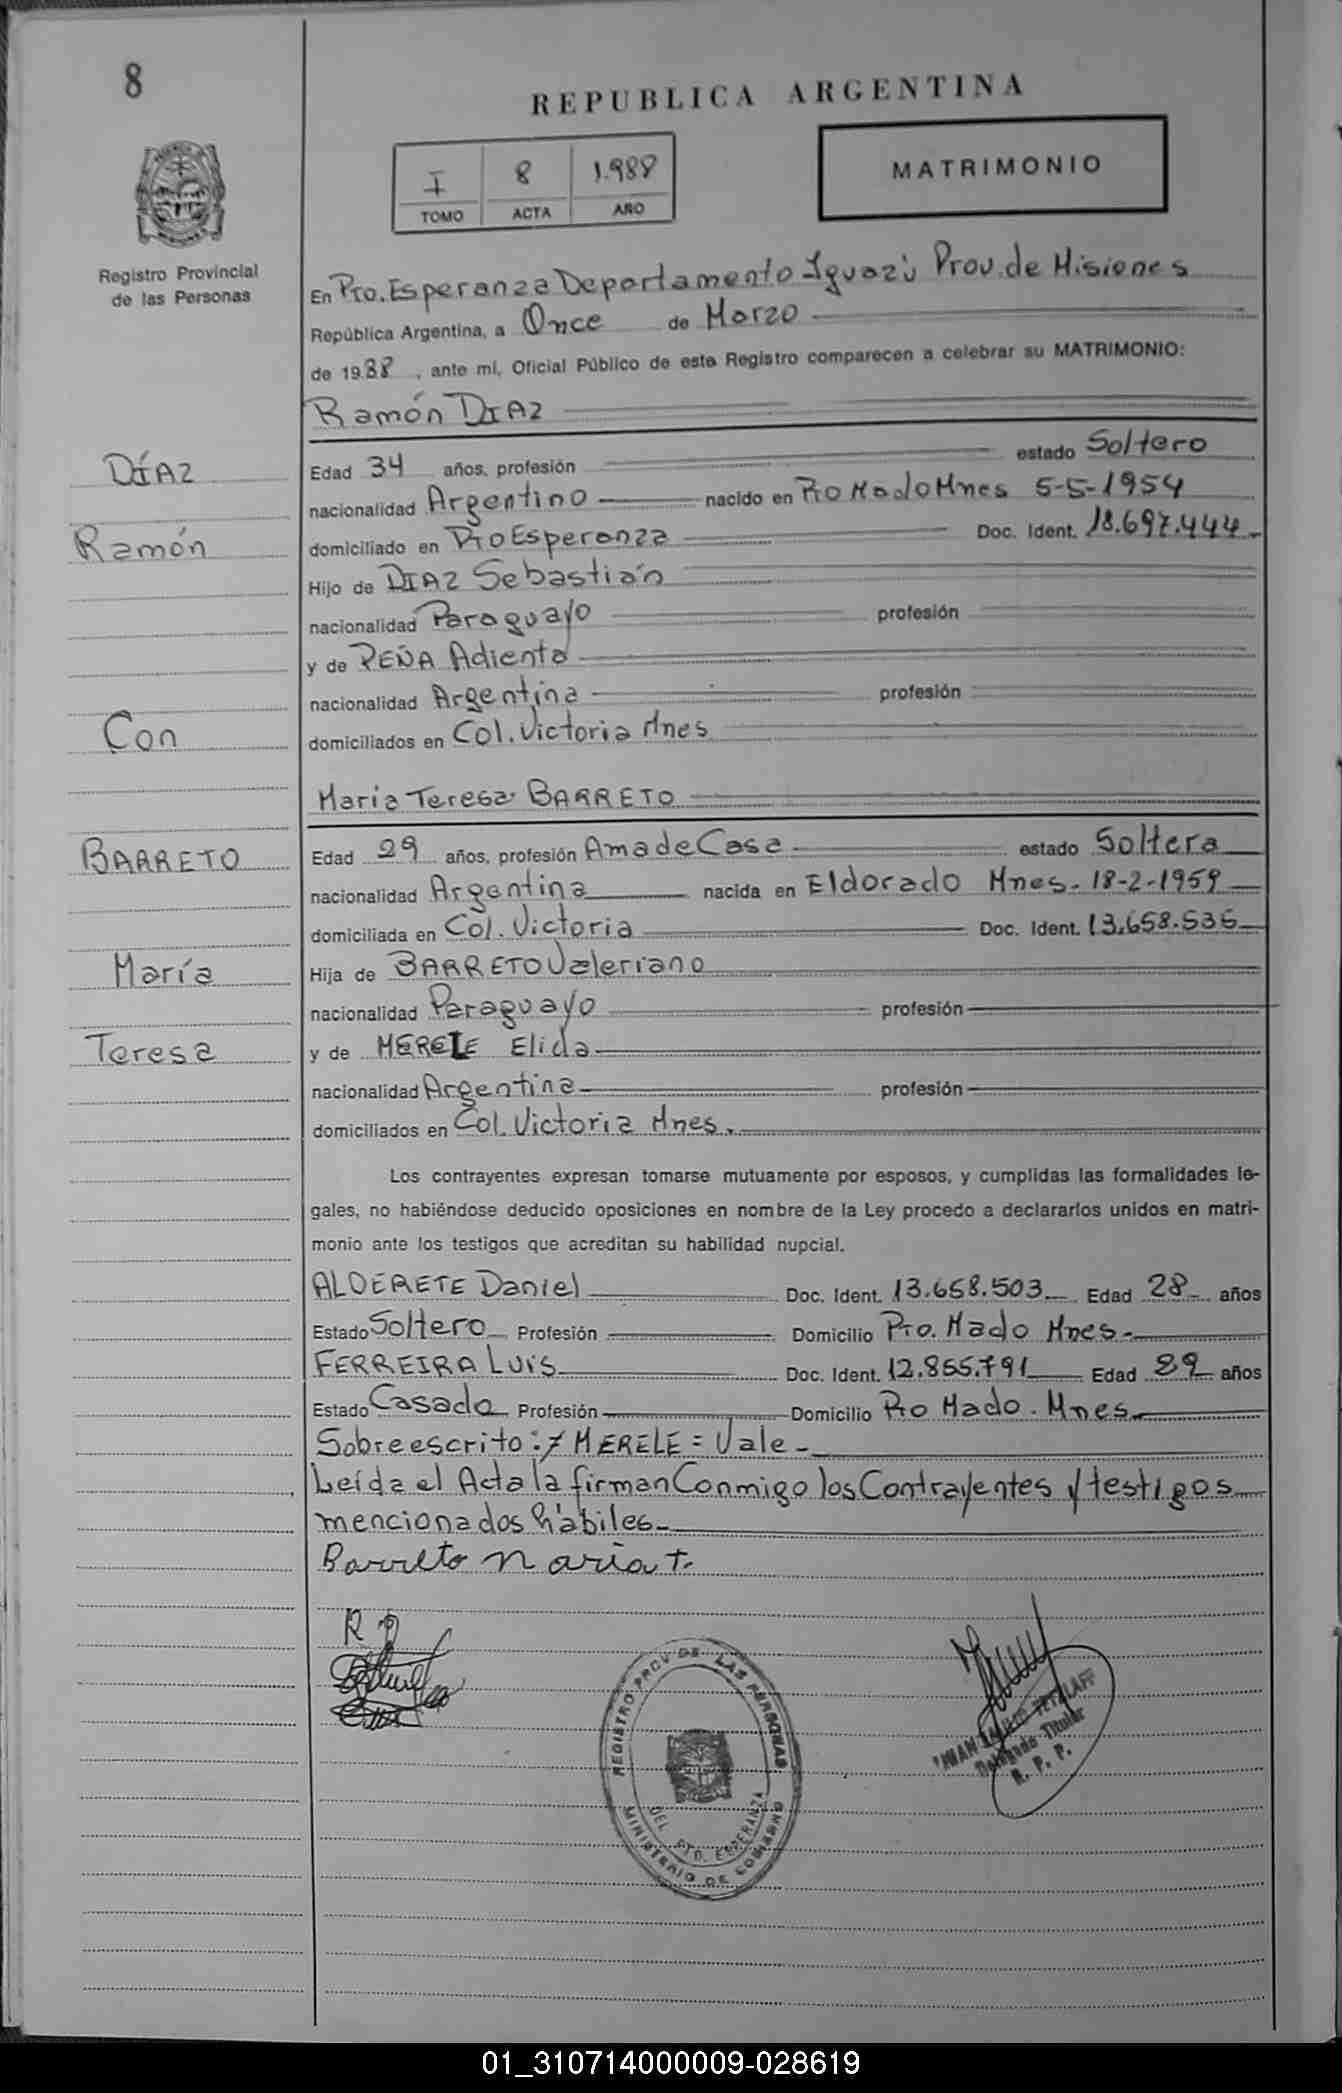 8
REPUBLICA ARGENTINA
I 8 1.988
TOMO ACTA AÑO
MATRIMONIO
Registro Provincial
de las Personas
En Pto. Esperanza Departamento Iguazú Prov. de Misiones
República Argentina, a Once de Marzo
de 1988, ante mí, Oficial Público de este Registro comparecen a celebrar su MATRIMONIO:
Ramón DIAZ
DÍAZ
Ramón
Con
BARRETO
María
Teresa
Edad 34 años, profesión estado Soltero
nacionalidad Argentino nacido en Pto Mado Mnes 5-5-1954
domiciliado en Pto Esperanza Doc. Ident. 18.697.444.-
Hijo de DIAZ Sebastián
nacionalidad Paraguayo profesión
y de PEÑA Adienta
nacionalidad Argentina profesión
domiciliados en Col. Victoria Mnes
María Teresa BARRETO
Edad 29 años, profesión Ama de Casa estado Soltera
nacionalidad Argentina nacida en Eldorado Mnes. 18-2-1959
domiciliada en Col. Victoria Doc. Ident. 13.658.536
Hija de BARRETO Valeriano
nacionalidad Paraguayo profesión
y de MERELE Elida
nacionalidad Argentina profesión
domiciliados en Col. Victoria Mnes.
Los contrayentes expresan tomarse mutuamente por esposos, y cumplidas las formalidades le-
gales, no habiéndose deducido oposiciones en nombre de la Ley procedo a declararlos unidos en matri-
monio ante los testigos que acreditan su habilidad nupcial.
ALDERETE Daniel Doc. Ident. 13.658.503 Edad 28 años
Estado Soltero Profesión Domicilio Pto. Mado Mnes.
FERREIRA LUIS Doc. Ident. 12.855.791 Edad 29 años
Estado Casado Profesión Domicilio Pto Mado. Mnes
Sobreescrito: MERELE = Vale
Leída el Acta la firman Conmigo los Contrayentes y testigos
mencionados hábiles.
Barreto Maria t.
R D
REGISTRO PROV DE LAS PERSONAS
DEL. PTO. ESPERANZA
MINISTERIO DE GOBIERNO
Delegado Titular
R. P. P.
01_310714000009-028619